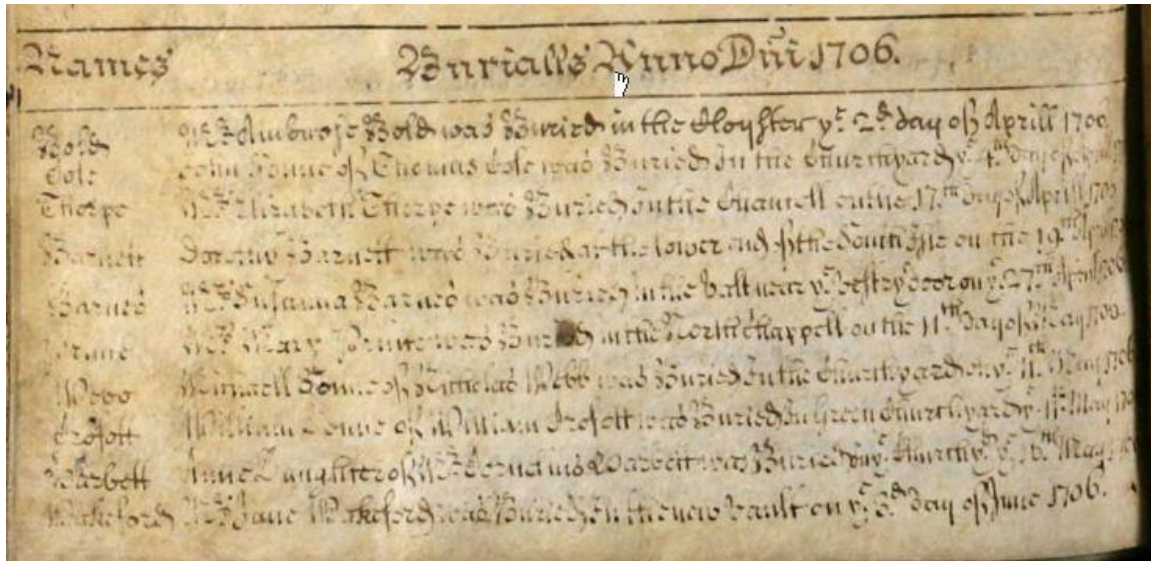 Names Burialls Anno Dñi 1706.
Bold Mr. Ambrose Bold was Buried in the Cloyster ye. 2d. day of Aprill 1706
Cole John Sonne of Thomas Cole was Buried In the Churchyard ye. 4th. day of
Thorpe Mrs. Elizabeth Thorpe was Buried In the Chancell on the 17th. day of Aprill 1706
Barnett Dorothy Barnett was Buried at the lower end of the South Ile on the 19th. Aprill
Barnes Mrs. Susanna Barnes was Buried in the Valt near ye. Vestry door on ye. 27th. Aprill 1706
Prune Mrs. Mary Prune was Buried in the North Chappell on the 11th. Day of May 1706.
Webb Michaell Sonne of Nicholas Webb was Buried In the Churchyard on ye. 11th. May 1706
William Sonne of William was Buried In Green Churchyard ye. 11th. May
Warbett Anne Daughter of Mr. Cornelius Warbett was Buried ye. Churchyd. ye. May
Wakeford Mrs. Jane Wakeford was Buried In the new Vault on ye. day of June 1706.